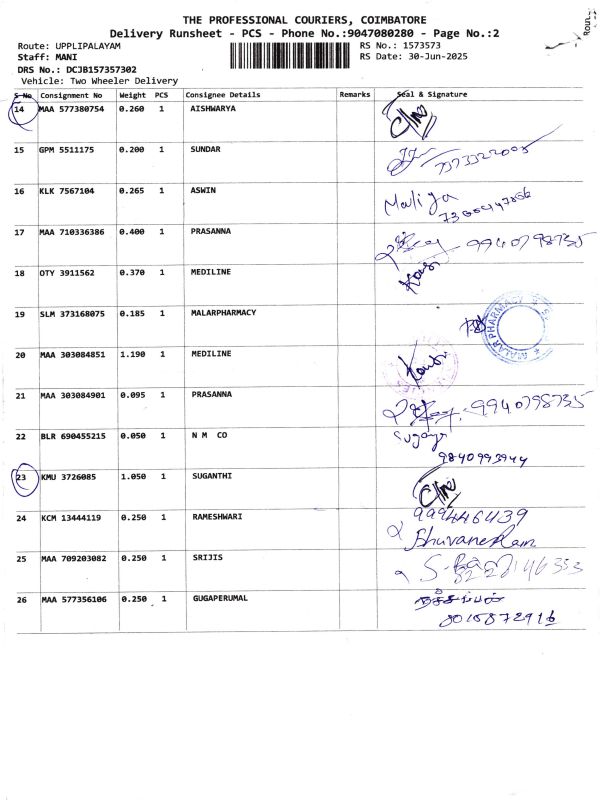 THE PROFESSIONAL COURIERS, COIMBATORE
Delivery Runsheet - PCS - Phone No.:9047080280 - Page No.:2
Route: UPPLIPALAYAM RS No.: 1573573
Staff: MANI RS Date: 30-Jun-2025
DRS No.: DCJB157357302
Vehicle: Two Wheeler Delivery
S No Consignment No Weight PCS Consignee Details Remarks Seal & Signature
14 MAA 577380754 0.260 1 AISHWARYA
15 GPM 5511175 0.200 1 SUNDAR
16 KLK 7567104 0.265 1 ASWIN Maliga
17 MAA 710336386 0.400 1 PRASANNA 9940798735
18 OTY 3911562 0.370 1 MEDILINE
19 SLM 373168075 0.185 1 MALARPHARMACY MALAR PHARMACY
20 MAA 303084851 1.190 1 MEDILINE
21 MAA 303084901 0.095 1 PRASANNA 9940798735
22 BLR 690455215 0.050 1 N M CO
9840993944
23 KMU 3726085 1.050 1 SUGANTHI
24 KCM 13444119 0.250 1 RAMESHWARI 999446439
25 MAA 709203082 0.250 1 SRIJIS
26 MAA 577356106 0.250 1 GUGAPERUMAL
8015872916